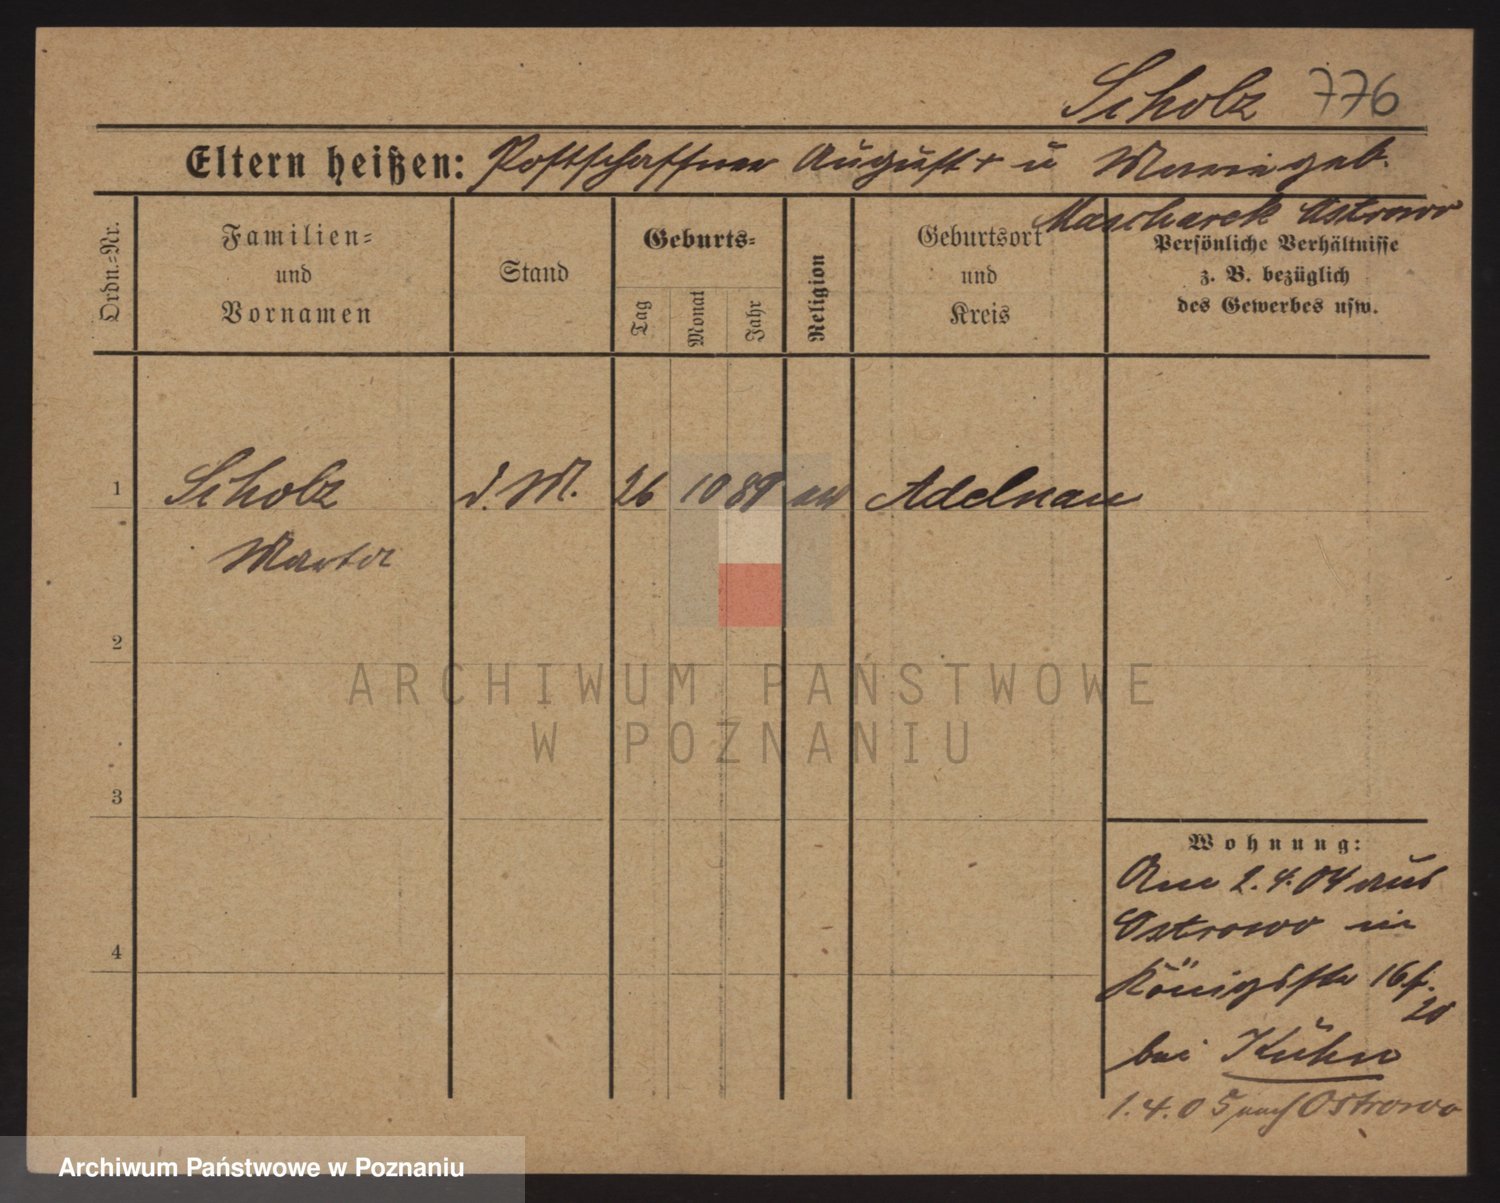 Scholz 776
Eltern heißen: Postschaffner August + u Marie geb.
Mascharek Ostrowo
Ordn.=Nr.
Familien=
und
Vornamen
Stand
Geburts=
Tag
Monat
Jahr
Religion
Geburtsort
und
Kreis
Persönliche Verhältnisse
z. B. bezüglich
des Gewerbes usw.
1 Scholz d. M. 26 10 89 ev Adelnau
Martha
2
3
4
ARCHIWUM PAŃSTWOWE
W POZNANIU
Wohnung:
Am 2.4.04 aus
Ostrowo in
Königsstr 16 f.
20
bei Kühn
1.4.05 nach Ostrowo
Archiwum Państwowe w Poznaniu